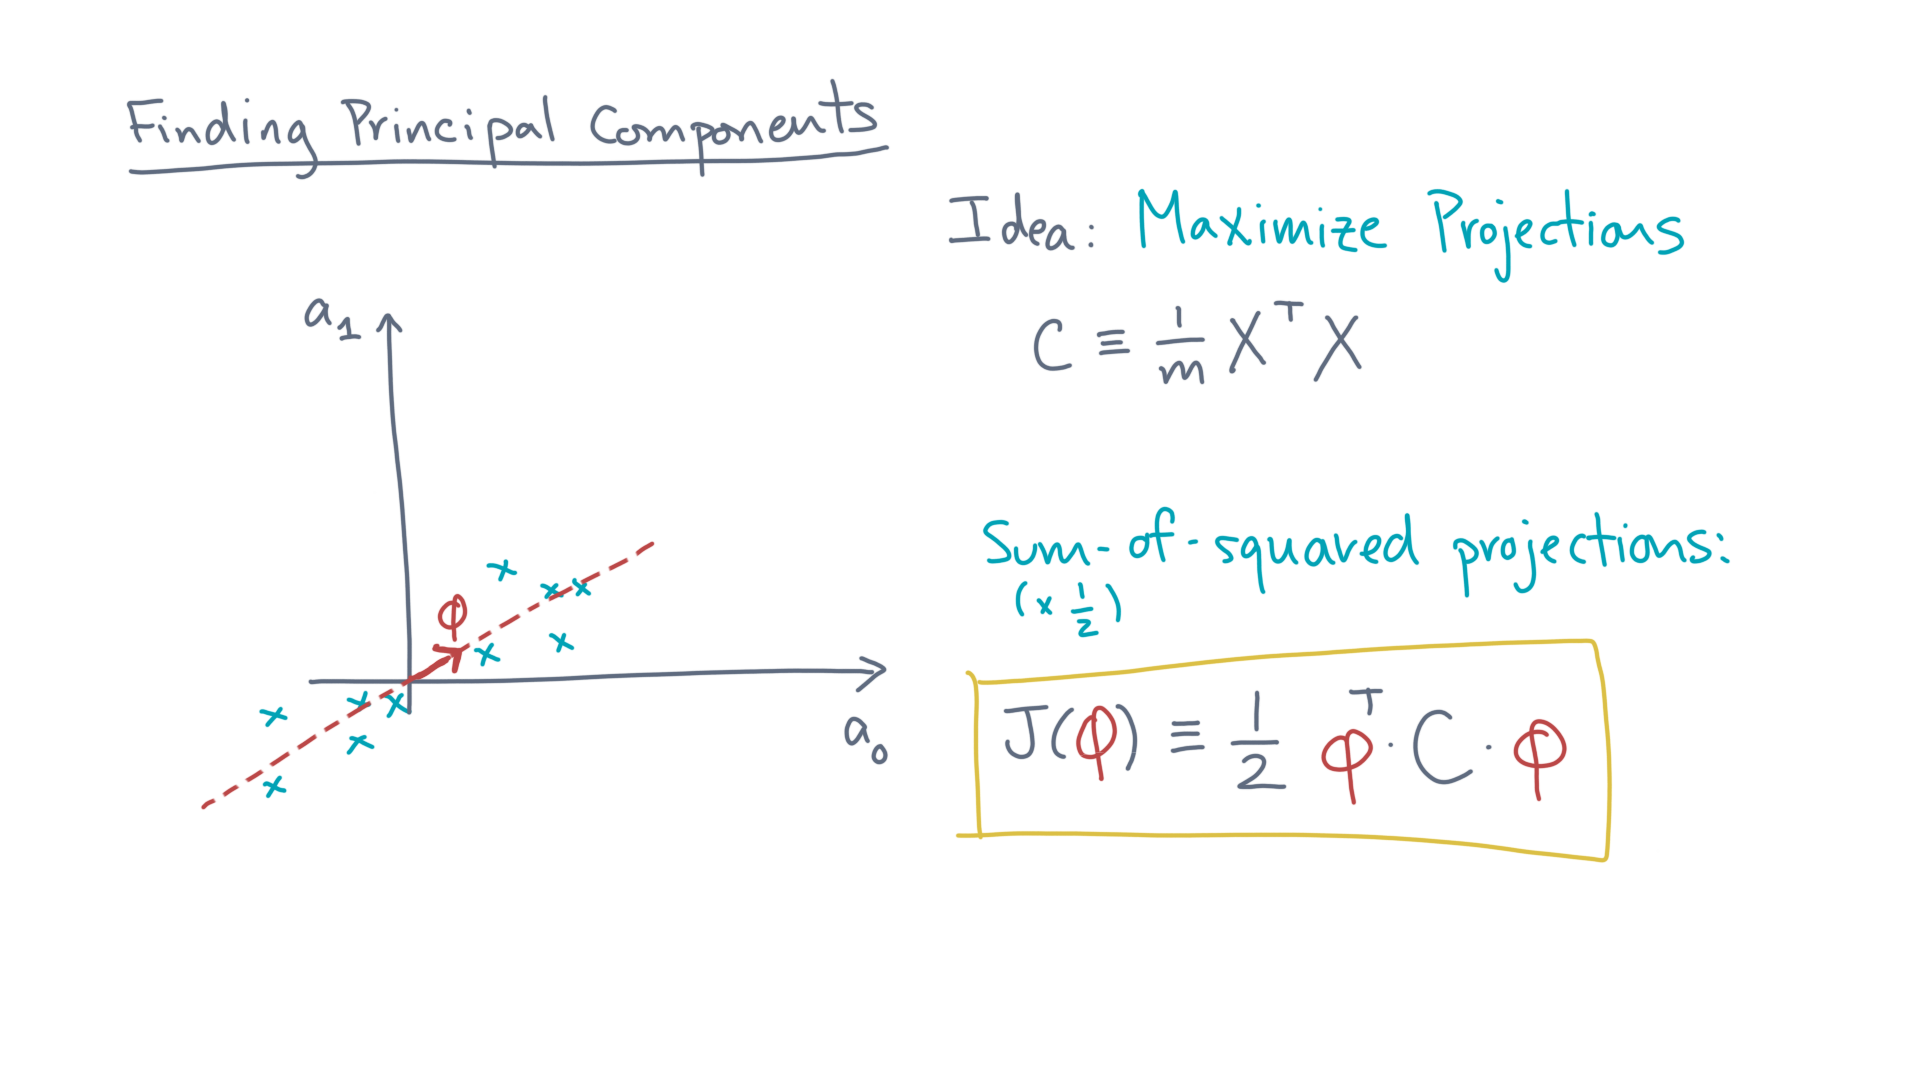 Finding Principal Components
Idea: Maximize Projections
C ≡ 1/m X^T X
a₁
ϕ
a₀
Sum-of-squared projections:
(x 1/2)
J(ϕ) ≡ 1/2 ϕ^T · C · ϕ